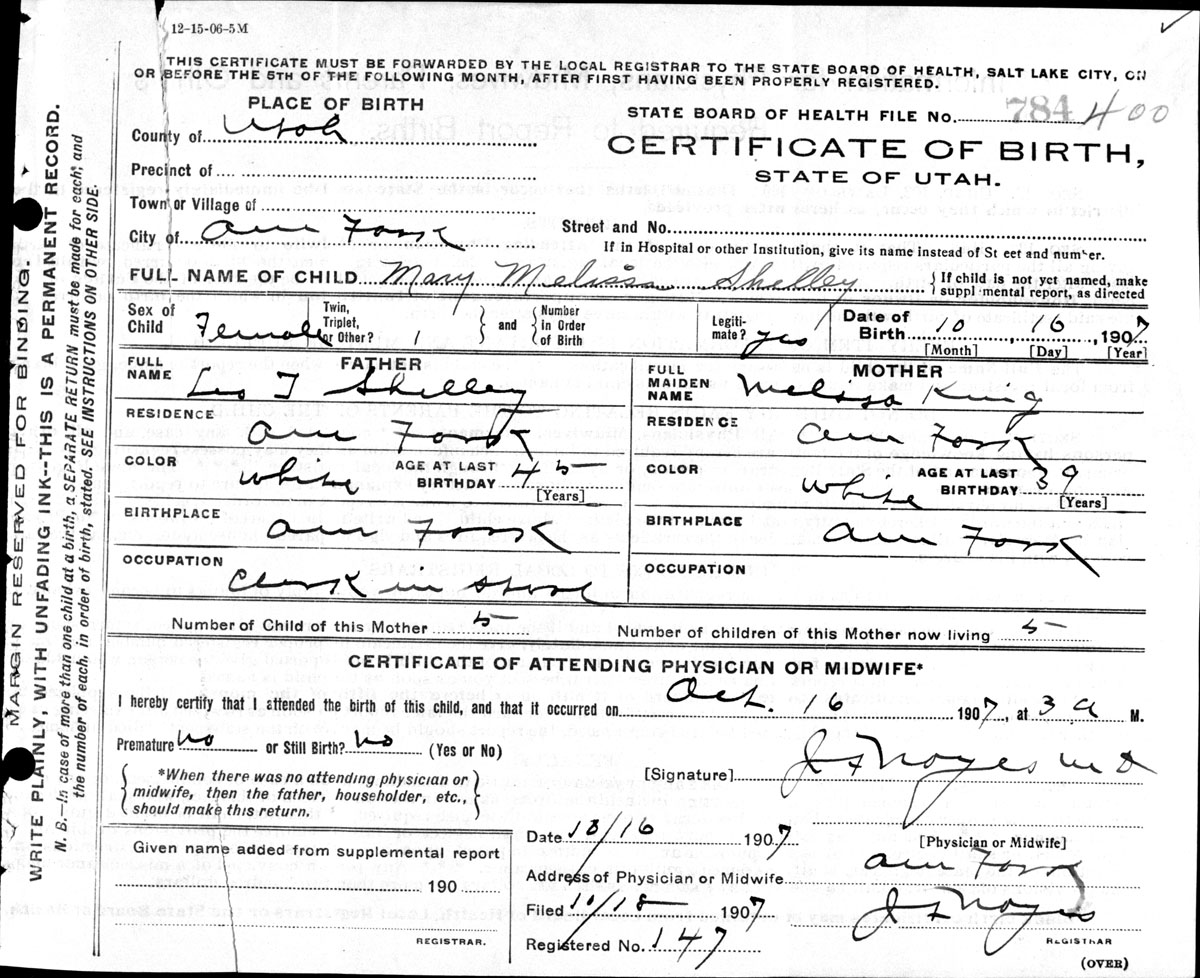 12-15-06-5M
THIS CERTIFICATE MUST BE FORWARDED BY THE LOCAL REGISTRAR TO THE STATE BOARD OF HEALTH, SALT LAKE CITY, ON
OR BEFORE THE 5TH OF THE FOLLOWING MONTH, AFTER FIRST HAVING BEEN PROPERLY REGISTERED.
PLACE OF BIRTH
County of Utah
Precinct of
Town or Village of
City of Am Fork
STATE BOARD OF HEALTH FILE No. 784 400
CERTIFICATE OF BIRTH,
STATE OF UTAH.
Street and No.
If in Hospital or other Institution, give its name instead of St eet and num er.
FULL NAME OF CHILD Mary Melissa Shelley { If child is not yet named, make
suppl mental report, as directed
Sex of Child Female Twin, Triplet, or Other? 1 } and { Number in Order of Birth Legiti-mate? yes Date of Birth 10 16, 1907
[Month] [Day] [Year]
FATHER
FULL NAME Leo T Shelley
RESIDENCE
Am Fork
COLOR white AGE AT LAST BIRTHDAY 45
[Years]
BIRTHPLACE
Am Fork
OCCUPATION
Clerk in Store
MOTHER
FULL MAIDEN NAME Melissa King
RESIDENCE
Am Fork
COLOR white AGE AT LAST BIRTHDAY 39
[Years]
BIRTHPLACE
Am Fork
OCCUPATION
Number of Child of this Mother 5 Number of children of this Mother now living 5
CERTIFICATE OF ATTENDING PHYSICIAN OR MIDWIFE*
I hereby certify that I attended the birth of this child, and that it occurred on Oct. 16 1907, at 3 a M.
Premature no or Still Birth? no (Yes or No)
*When there was no attending physician or
midwife, then the father, householder, etc.,
should make this return.
[Signature] J F Noyes M D
[Physician or Midwife]
Given name added from supplemental report
190
REGISTRAR.
Date 10/16 1907
Address of Physician or Midwife Am Fork
Filed 10/18 1907 J F Noyes
Registered No. 147 REGISTRAR
(OVER)
MARGIN RESERVED FOR BINDING
WRITE PLAINLY, WITH UNFADING INK--THIS IS A PERMANENT RECORD.
N. B.—In case of more than one child at a birth, a SEPARATE RETURN must be made for each; and
the number of each, in order of birth, stated. SEE INSTRUCTIONS ON OTHER SIDE.